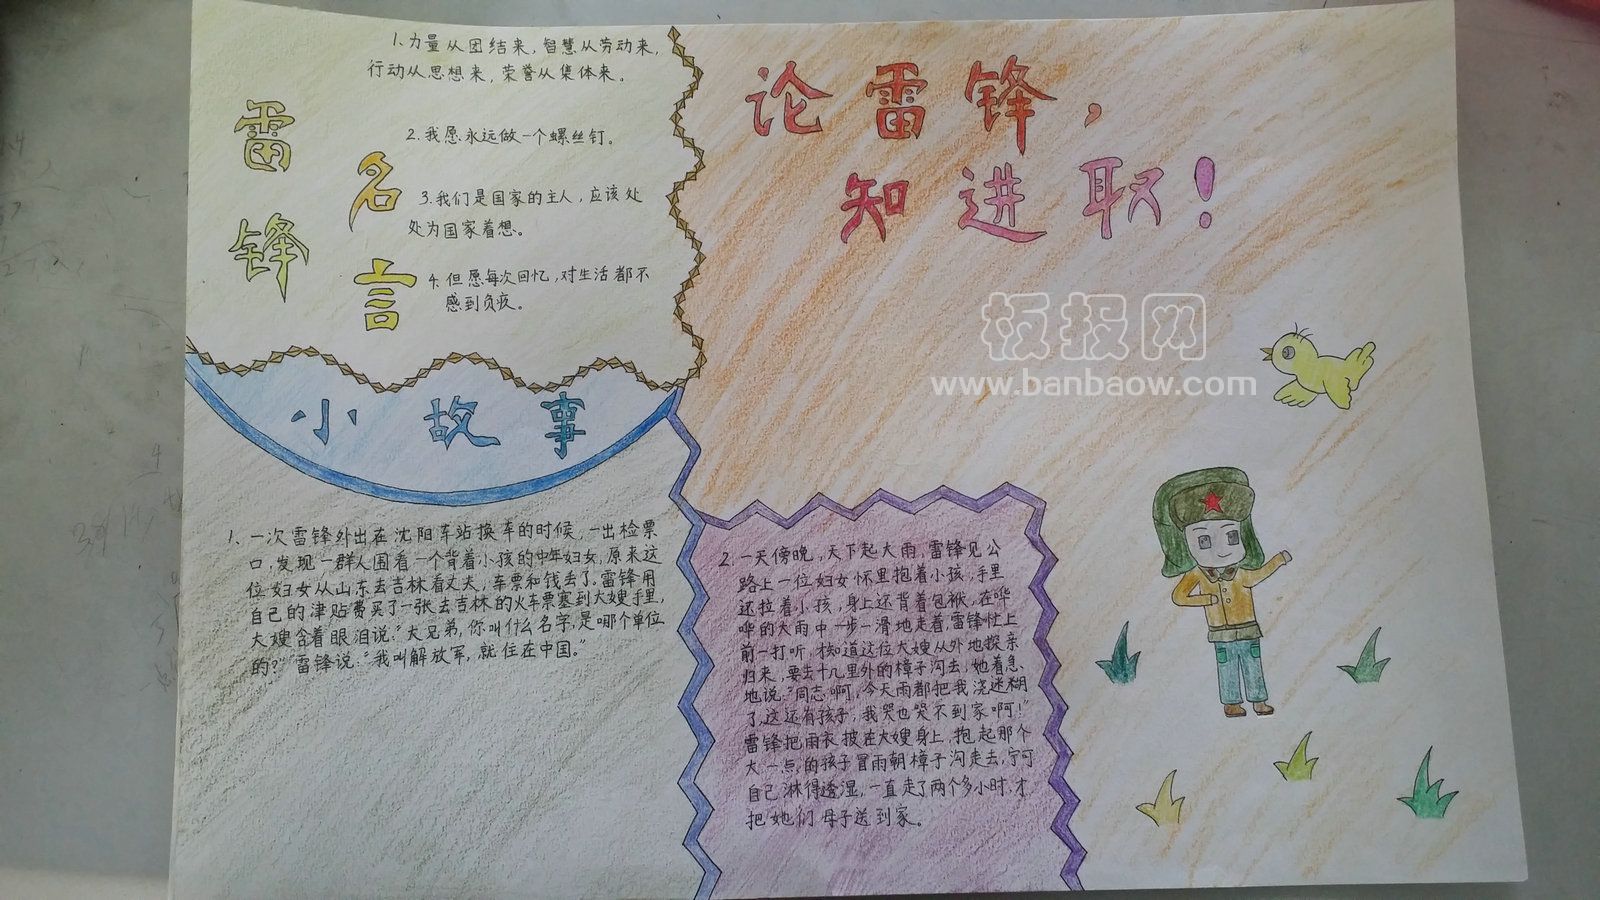 论雷锋，
知进取！
雷锋
名言
1、力量从团结来，智慧从劳动来，
行动从思想来，荣誉从集体来。
2.我愿永远做一个螺丝钉。
3.我们是国家的主人，应该处
处为国家着想。
4.但愿每次回忆，对生活都不
感到负疚。
小故事
1、一次雷锋外出在沈阳车站换车的时候，一出检票
口，发现一群人围看一个背着小孩的中年妇女，原来这
位妇女从山东去吉林看丈夫，车票和钱丢了。雷锋用
自己的津贴费买了一张去吉林的火车票塞到大嫂手里，
大嫂含着眼泪说：“大兄弟，你叫什么名字，是哪个单位
的？”雷锋说：“我叫解放军，就住在中国。”
2.一天傍晚，天下起大雨，雷锋见公
路上一位妇女怀里抱着小孩，手里
还拉着小孩，身上还背着包袱，在哗
哗的大雨中一步一滑地走着，雷锋忙上
前一打听，才知道这位大嫂从外地探亲
归来，要去十几里外的樟子沟去，她着急
地说：“同志啊，今天雨都把我浇迷糊
了，这还有孩子，我哭也哭不到家啊！”
雷锋把雨衣披在大嫂身上，抱起那个
大一点的孩子冒雨朝樟子沟走去，宁可
自己淋得透湿，一直走了两个多小时，才
把她们母子送到家。
板报网
www.banbaow.com